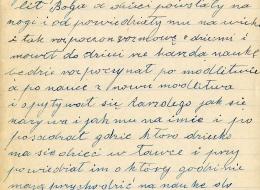 Boga a dzieci powstały na
nogi i odpowiedziały mu na wieki
i tak rozpoczoł rozmowę z dziećmi i
mowił do dzieci że każda nauka
będzie rozpoczynał po modlitwie
a po nauce z nowu modlitwa
i spytywał się każdego jak się
nazywa i jak mu na imie i po
posadzał gdzie ktore dziecko
ma siedzieć w ławce i przy
powiedział im o ktory godzinie
mają przychodzić na nauke